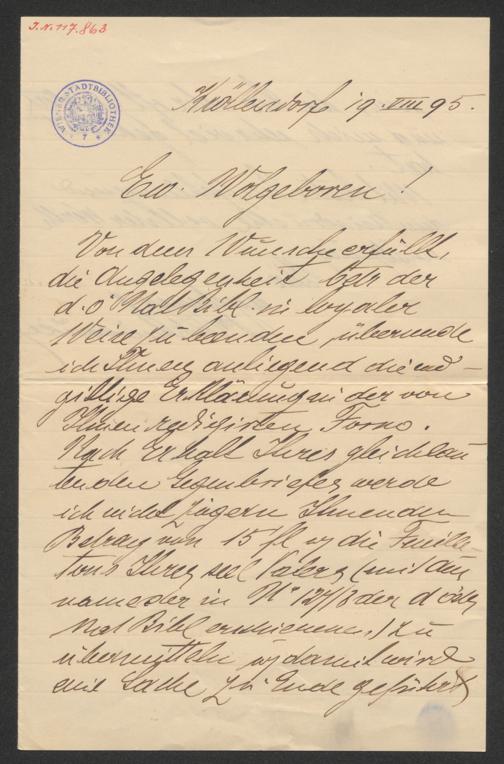 J.N. 117.863
WIENER STADTBIBLIOTHEK
Köttensdorf 19. VIII 95.
Ew. Wolgeboren!
Von dem Wunsche erfüllt,
die Angelegenheit betr der
d. ö Nat Bibl. in loyaler
Weise zu beenden, übersende
ich Ihnen anliegend die end-
giltige Erklärung in der von
Ihnen redigirten Form.
Nach Erhalt Ihres gleichlau-
tenden Gegenbriefes werde
ich nicht zögern Ihnen den
Betrag von 15 fl u die Feuille-
tons Ihres sel Vaters (mit Aus
name der in No 127/8 der d östr
Nat Bibl erschienenen) zu
übermitteln u damit wird
die Sache zu Ende geführt